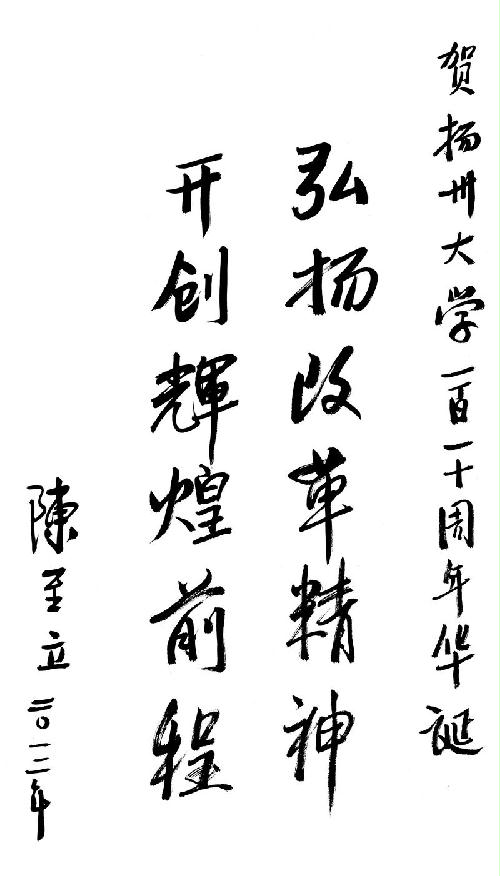 贺扬州大学一百一十周年华诞
弘扬改革精神
开创輝煌前程
陳至立二〇一二年